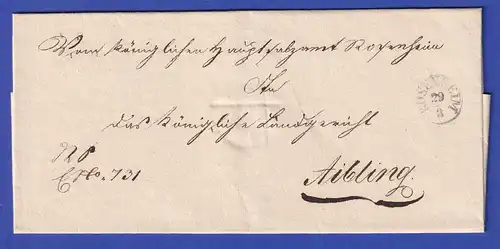 Vom Königlichen Hauptsalzamt Rosenheim
An
das Königliche Landgericht
ROSENHEIM
29
3
E No. 731
Aibling.